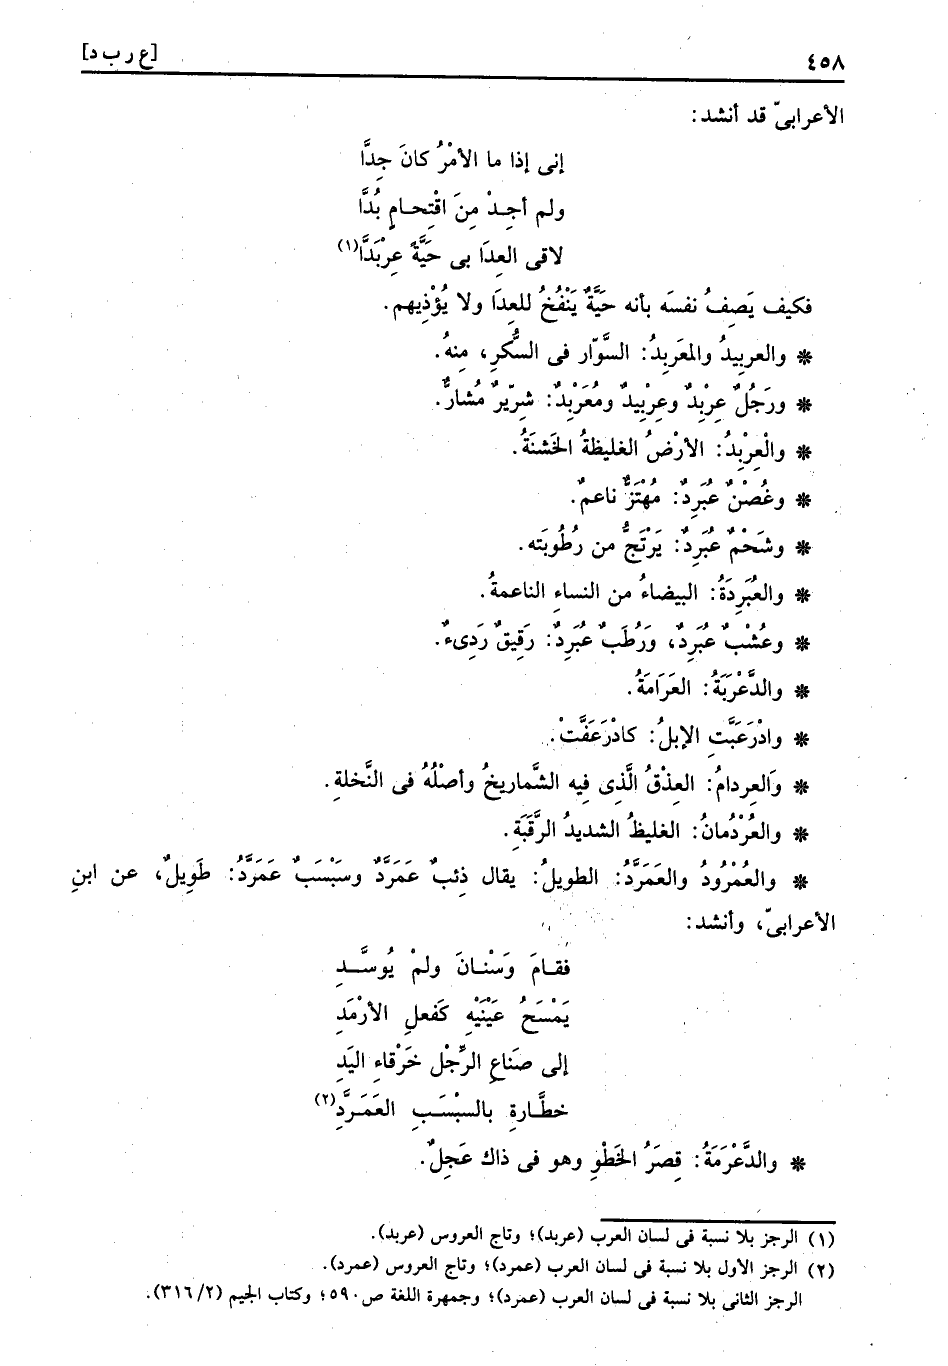 ٤٥٨
[ع ر ب د]
الأعرابىّ قد أنشد:
إنى إذا ما الأمْرُ كانَ جِدَّا
ولم أجِـدْ مِنَ اقْتِحـامٍ بُدَّا
لاقى العِدَا بى حَيَّةً عِرْبَدَّا(١)
فكيف يَصِفُ نفسَه بأنه حَيَّةٌ يَنْفُخُ للعِدَا ولا يُؤْذِيهم.
* والعربِيدُ والمعَربِدُ: السوَّار فى السُّكرِ، مِنهُ.
* ورَجُلٌ عِرْبِدٌ وعِرْبِيدٌ ومُعَرْبِدٌ: شرِّيرٌ مُشارٌّ.
* والْعِرْبِدُ: الأرْضُ الغليظةُ الخَشنَةُ.
* وغُصْنٌ عُبَرِدٌ: مُهْتَزٌّ ناعمٌ.
* وشَحْمٌ عُبَرِدٌ: يَرْتَجُّ من رُطُوبَته.
* والعُبَرِدَةُ: البيضاءُ من النساءِ الناعمةُ.
* وعُشْبٌ عُبَرِدٌ، ورُطَبٌ عُبَرِدٌ: رَقِيقٌ رَدِىءٌ.
* والدَّعْرَبَةُ: العَرَامَةُ.
* وادْرَعَبَّتِ الإبلُ: كادْرَعَفَّتْ.
* وَالعِردامُ: العِذْقُ الَّذِى فيه الشَّماريخُ وأصْلُهُ فى النَّخلةِ.
* والعُرْدُمانُ: الغليظُ الشديدُ الرَّقَبَةِ.
* والعُمْرُودُ والعَمَرَّدُ: الطويلُ: يقال ذِئبٌ عَمَرَّدٌ وسَبْسَبٌ عَمَرَّدٌ: طَوِيلٌ، عن ابنِ
الأعرابىّ، وأنشد:
فقـامَ وَسْنـانَ ولمْ يُوسـَّـدِ
يَمْسَحُ عَيْنَيْهِ كَفعلِ الأرْمَدِ
إلى صنَاعِ الرِّجْلِ خَرْقاءِ اليَدِ
خطَّـارةٍ بالسبْسَـبِ العَمَـرَّدِ(٢)
* والدَّعْرَمَةُ: قِصَرُ الخَطْوِ وهو فى ذاك عَجِلٌ.
(١) الرجز بلا نسبة فى لسان العرب (عربد)؛ وتاج العروس (عربد).
(٢) الرجز الأول بلا نسبة فى لسان العرب (عمرد)؛ وتاج العروس (عمرد).
الرجز الثانى بلا نسبة فى لسان العرب (عمرد)؛ وجمهرة اللغة ص٥٩٠؛ وكتاب الجيم (٣١٦/٢).